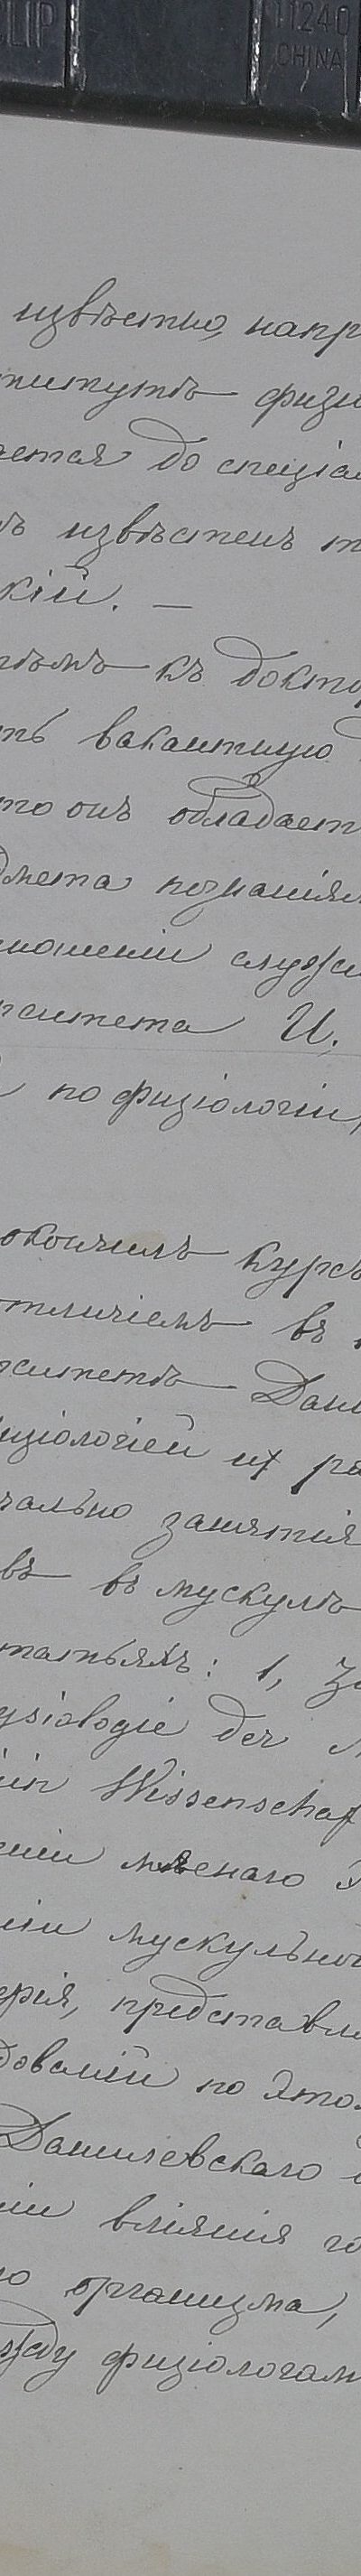 CLIP 11240
CHINA
извѣстно, напр
титутъ физи
ается до спеціал
ъ извѣстенъ т
кій. —
къ докто
ть вакантную
то онъ обладает
дмета познаніям
ношеніи служ
рситета И.
по физіологіи,
окончилъ курсъ
отличіемъ въ
рситетѣ Дани
изіологіей их ра
чально занятія
въ въ мускулѣ
татьяхъ: 1, Zu
ysiologie der M
cin Wissenschaf
еніи мяснаго э
ніи мускульной
ерія, представля
дованій по этом
Данилевскаго
ніи вліянія го
го организма,
жду физіологам